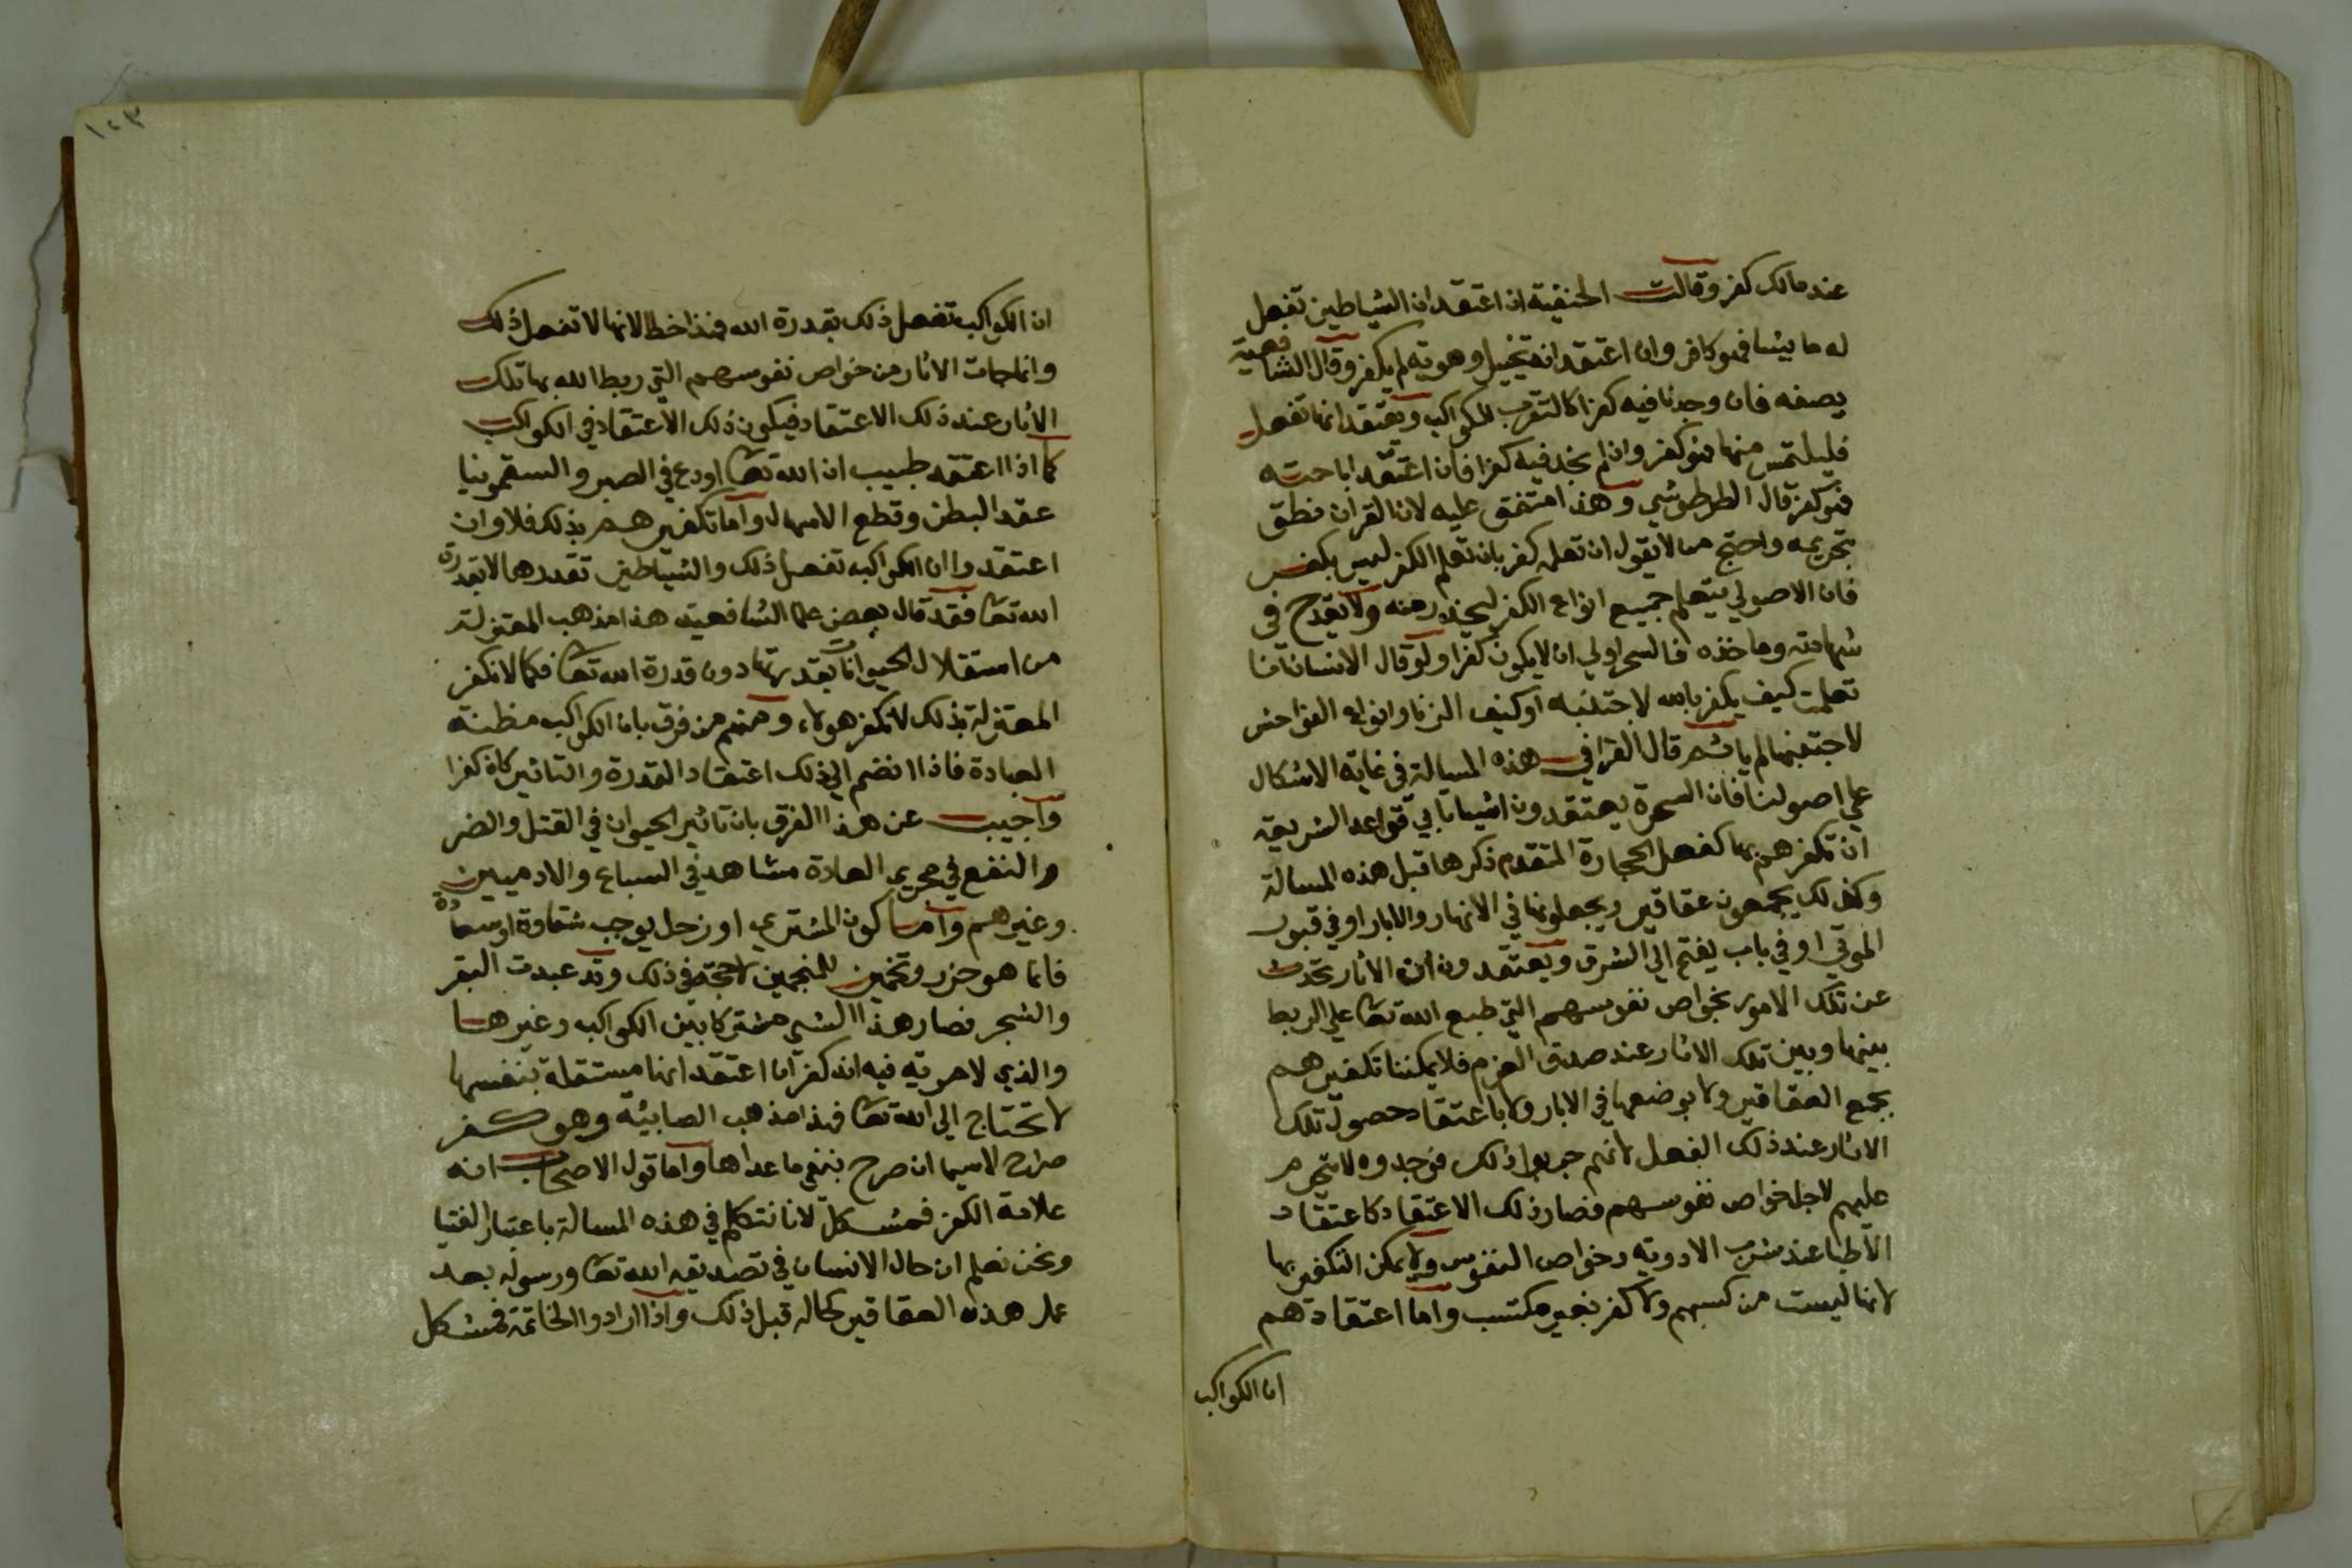 عند مالك كفر وقالت الحنفية ان اعتقد ان الشياطين تفعل
له ما يشا فهو كافر وان اعتقد انه تخييل وهويه لم يكفر وقال الشافعية
يصفه فان وجدنا فيه كفرا كالتقرب للكواكب ويعتقد انها تفعل
فليلتمس منها فهو كفر وان لم نجد فيه كفرا فان اعتقد اباحته
فهو كفر قال الطرطوشي وهذا متفق عليه لان القران نطق
بتحريمه واحتج من لا يقول ان تعلمه كفر بان تعلم الكفر ليس بكفر
فان الاصولي يتعلم جميع انواع الكفر ليحذر منه ولا يقدح في
شهادته وماخذه فالسحر اولي ان لا يكون كفرا ولو قال الانسان انا
تعلمت كيف يكفر بالله لاجتنبه او كيف الزنا وانواع الفواحش
لاجتنبها لم ياثم قال القرافي هذه المسالة في غاية الاشكال
علي اصولنا فان السحرة يعتقدون اشيا تابي قواعد الشريعة
ان تكفرهم بها كفعل الحجارة المتقدم ذكرها قبل هذه المسالة
وكذلك يجمعون عقاقير ويجعلونها في الانهار والابار او في قبور
الموتي او في باب يفتح الي الشرق ويعتقدون ان الاثار تحدث
عن تلك الامور بخواص نفوسهم التي طبع الله تعا علي الربط
بينها وبين تلك الاثار عند صدق العزم فلا يمكننا تكفيرهم
بجمع العقاقير ولا بوضعها في الابار ولا باعتقاد حصول تلك
الاثار عند ذلك الفعل لانهم جربوا ذلك فوجدوه لا يتخرم
عليهم لاجل خواص نفوسهم فصار ذلك الاعتقاد كاعتقاد
الاطبا عند شرب الادوية وخواص النفوس ولا يمكن التكفير بها
لانها ليست من كسبهم ولا كفر بغير مكتسب واما اعتقادهم
ان الكواكب
١٢٣
ان الكواكب تفعل ذلك بقدرة الله فهذا خطا لانها لا تفعل ذلك
وانما جات الاثار من خواص نفوسهم التي ربط الله بها تلك
الاثار عند ذلك الاعتقاد فيكون ذلك الاعتقاد في الكواكب
كما اذا اعتقد طبيب ان الله تعا اودع في الصبر والسقمونيا
عقد البطن وقطع الاسهال واما تكفيرهم بذلك فلا وان
اعتقدوا ان الكواكب تفعل ذلك والشياطين تقدرها لا بقدرة
الله تعا فقد قال بعض علما الشافعية هذا مذهب المعتزلة
من استقلال الحيوانات بقدرتها دون قدرة الله تعا فكما لا نكفر
المعتزلة بذلك لا نكفر هولاء ومنهم من فرق بان الكواكب مظنة
العبادة فاذا انضم الي ذلك اعتقاد القدرة والتاثير كان كفرا
واجيب عن هذا الفرق بان تاثير الحيوان في القتل والضر
والنفع في مجري العادة مشاهد في السباع والادميين
وغيرهم واما كون المشتري او زحل يوجب شقاوة او سعادة
فانما هو حزر وتخمين للمنجمين لا حجة في ذلك وقد عبدت البقر
والشجر فصار هذا الشي مشتركا بين الكواكب وغيرها
والذي لا مرية فيه انه كفر ان اعتقد انها مستقلة بنفسها
لا تحتاج الي الله تعا فهذا مذهب الصابئة وهو كفر
صراح لاسيما ان صرح بنفي ما عداها واما قول الاصحاب انه
علامة الكفر فمشكل لاننا نتكلم في هذه المسالة باعتبار الفتيا
ونحن نعلم ان حال الانسان في تصديقه الله تعا ورسوله بعد
عمل هذه العقاقير كحاله قبل ذلك واذا ارادوا الخاتمة فمشكل